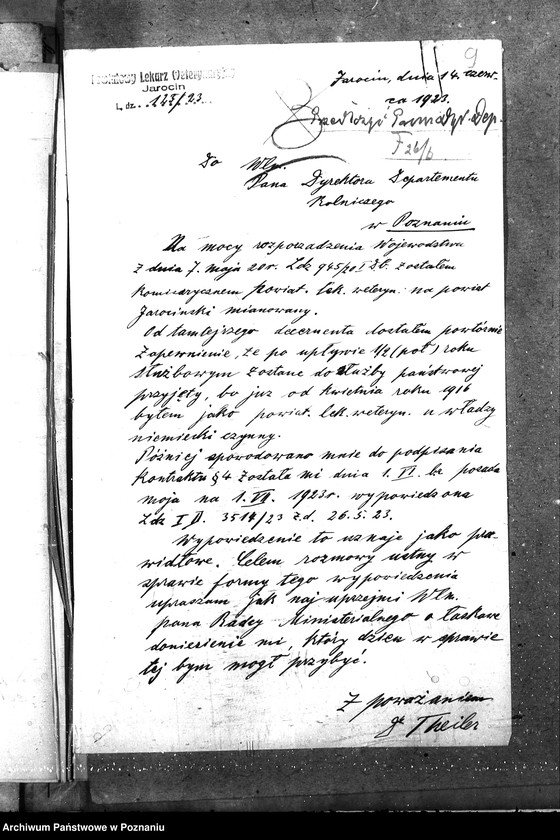 9
Powiatowy Lekarz Weterynaryjny
Jarocin
L. dz. 147/23
Jarocin, dnia 14. czerw-
ca 1923.
Przedłożyć Panu Dyr. Dep.
F 26/6
Do Wlm.
Pana Dyrektora Departamentu
Rolniczego
w Poznaniu
Na mocy rozporządzenia Województwa
z dnia 7. maja 20 r. Ldz 945/20 I Zt. zostałem
komisarycznem powiat. lek. weteryn. na powiat
Jarociński mianowany.
Od tamtejszego decernenta dostałem powtórnie
zapewnienie, że po upływie 1/2 (pół) roku
służbowym zostanę do służby państwowej
przyjęty, bo już od kwietnia roku 1916
byłem jako powiat. lek. weteryn. u władzy
niemiecki czynny.
Później spowodowano mnie do podpisania
kontraktu § 4 została mi dnia 1. VI. br posada
moja na 1. VII. 1923 r. wypowiedziona
Ldz I D. 3514/23 z d. 26. 5. 23.
Wypowiedzenie to uznaje jako pra-
widłowe. Celem rozmowy ustny w
sprawie formy tego wypowiedzenia
upraszam jak naj uprzejmi Wlm.
pana Radcy Ministerialnego o łaskawe
doniesienie mi, który dzień w sprawie
tej bym mogł przybyć.
Z poważaniem
Dr Theiler
Archiwum Państwowe w Poznaniu